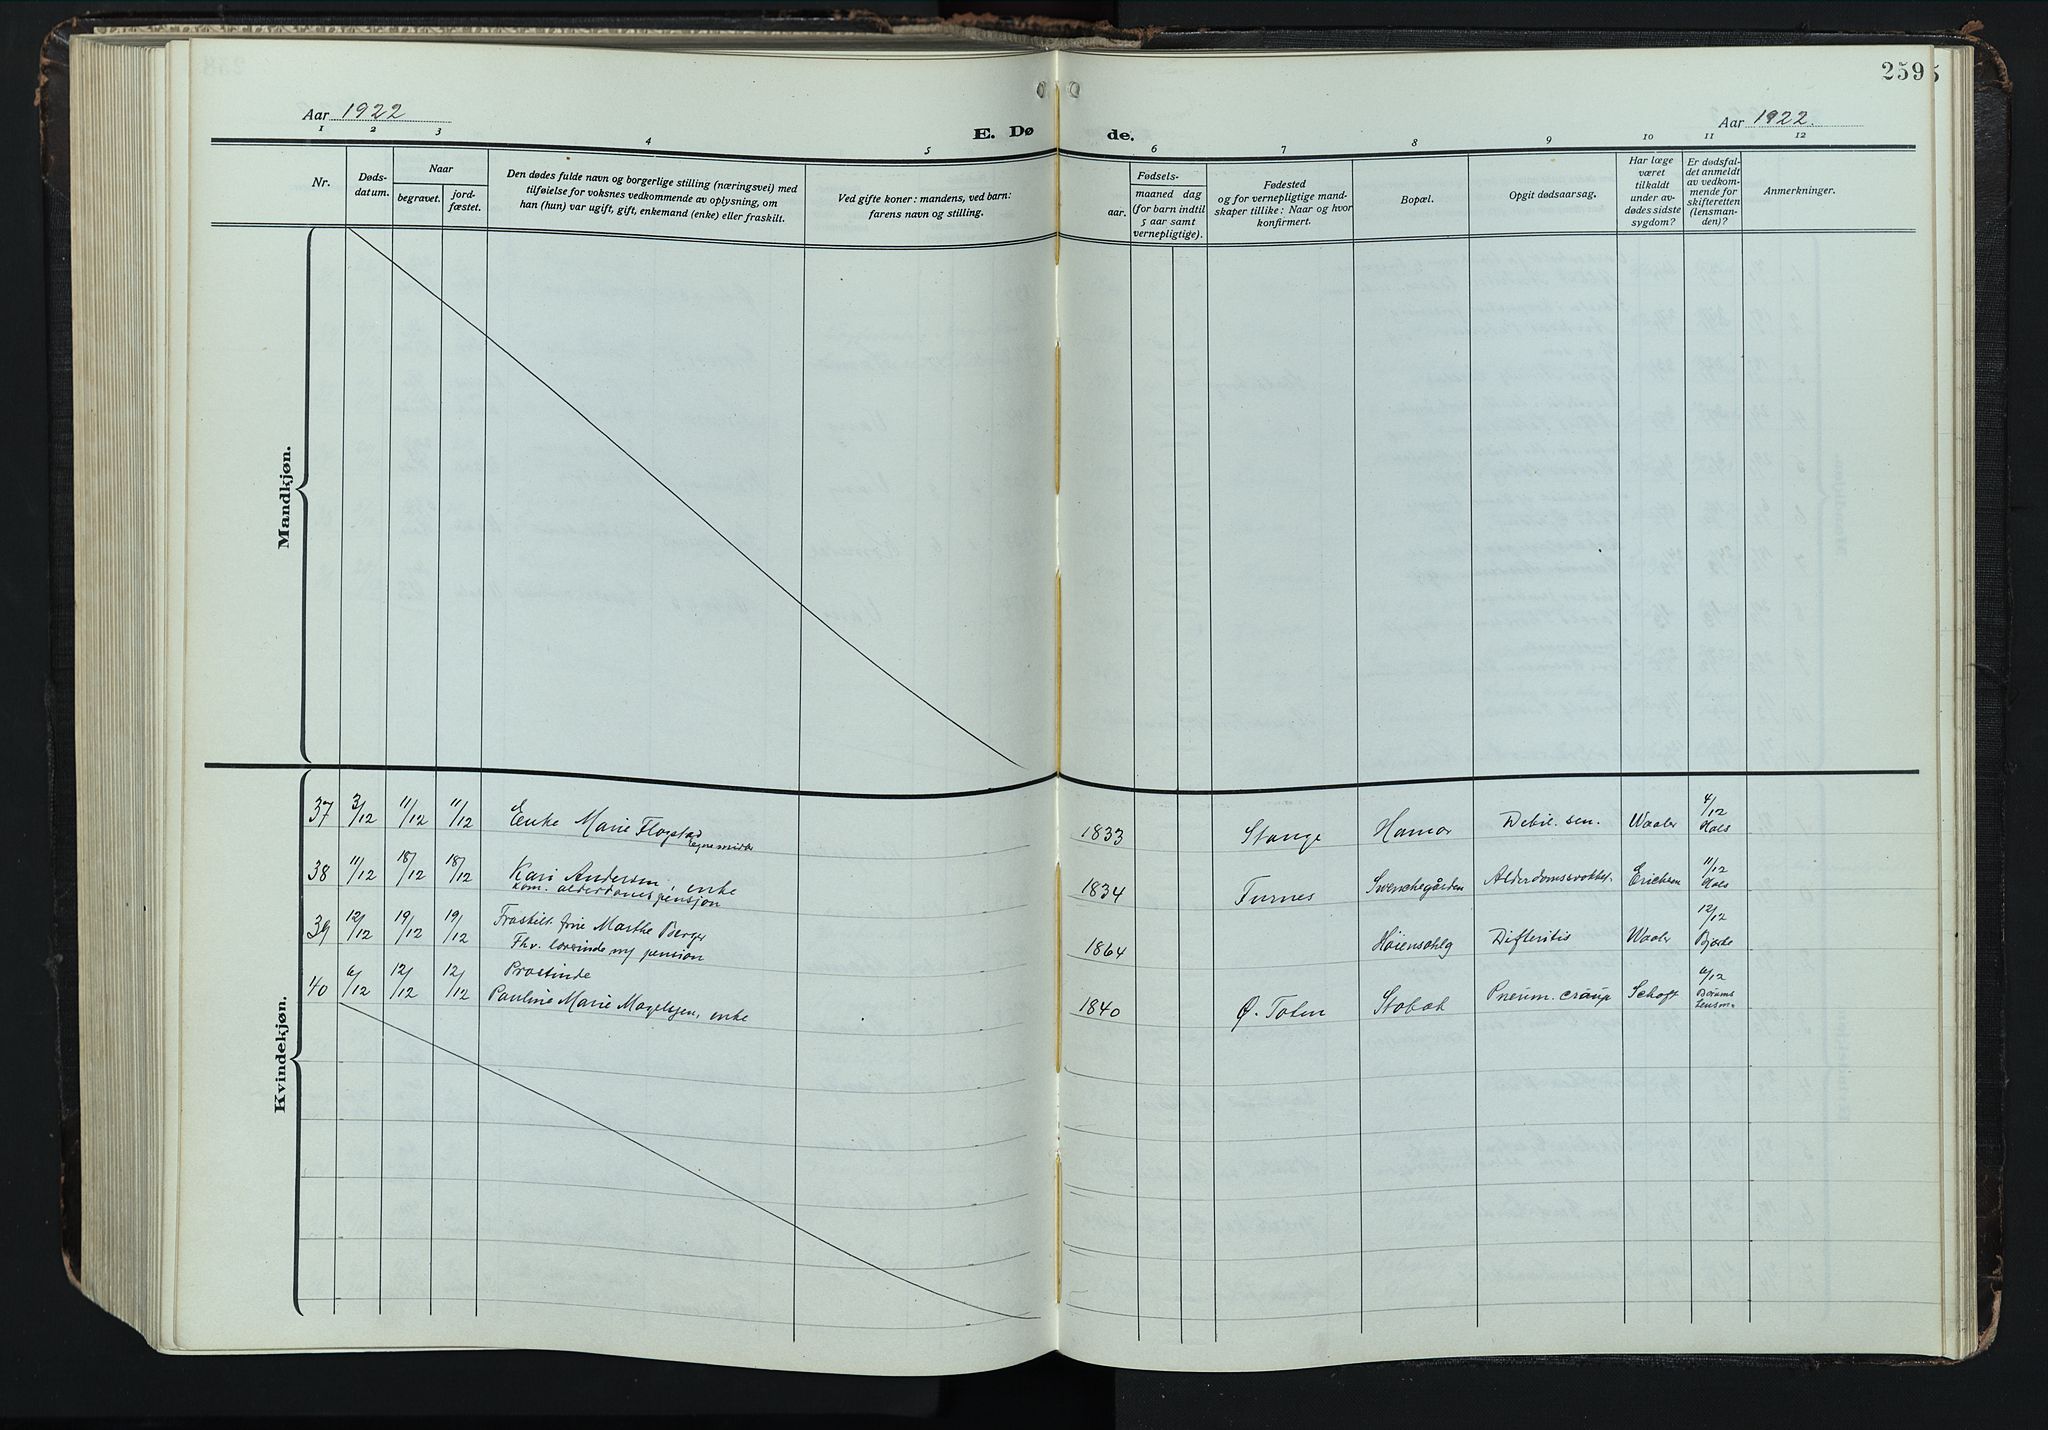 2595
Aar 1922
E. Dø de.
Aar 1922.
1 2 3 4 5 6 7 8 9 10 11 12
Nr.
Døds-
datum.
Naar
begravet.
jord-
fæstet.
Den dødes fulde navn og borgerlige stilling (næringsvei) med
tilføielse for voksnes vedkommende av oplysning, om
han (hun) var ugift, gift, enkemand (enke) eller fraskilt.
Ved gifte koner: mandens, ved barn:
farens navn og stilling.
Fødsels-
aar.
maaned dag
(for barn indtil
5 aar samt
vernepligtige).
Fødested
og for vernepligtige mand-
skaper tillike: Naar og hvor
konfirmert.
Bopæl.
Opgit dødsaarsag.
Har læge
været
tilkaldt
under av-
dødes sidste
sygdom?
Er dødsfal-
det anmeldt
av vedkom-
mende for
skifteretten
(lensman-
den)?
Anmerkninger.
Mandkjøn.
Kvindekjøn.
37 3/12 11/12 11/12 Enke Marie Flagstad 1833 Stange Hamar Debil. sen. Waaler 4/12
Egne midler
38 11/12 18/12 18/12 Kari Andersen, enke 1834 Furnes Svenchegården Erichsen 11/12
kom. alderdomspensjon
39 12/12 19/12 19/12 Fraskilt frue Marthe Berger 1864 Difteritis Waaler 12/12
Fhv. lærerinde m/ pension
40 6/12 12/12 12/12 Prostinde
Pauline Marie Magelsen, enke 1840 Ø. Toten Stabæk Pneum. croup 6/12
Bærums
Lensm.